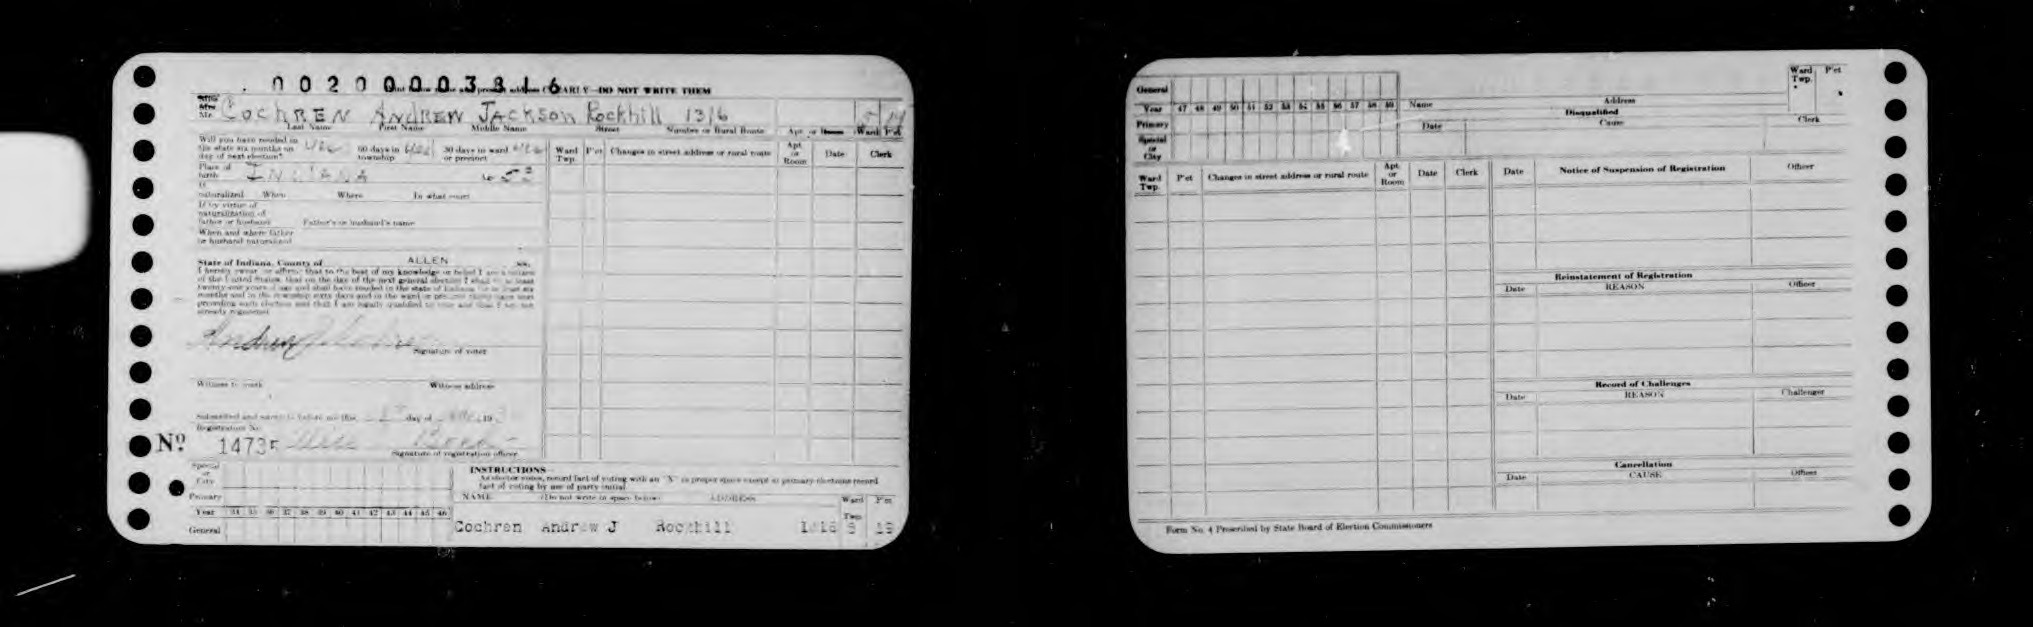 00200003816
EARLY—DO NOT WRITE THEM
Mr. Cochren Andrew Jackson Rockhill 1316 5 19
Last Name First Name Middle Name Street Number or Rural Route Apt. or Room Ward P'ct
Will you have resided in the state six months on day of next election? Yes 60 days in township Yes 30 days in ward or precinct Yes
Ward Twp. P'ct Changes in street address or rural route Apt. or Room Date Clerk
Place of birth INDIANA
If naturalized When Where In what court
If by virtue of naturalization of father or husband Father's or husband's name
When and where father or husband naturalized
State of Indiana, County of ALLEN ss.
I hereby swear or affirm that to the best of my knowledge or belief I am a citizen
of the United States, that on the day of the next general election I shall be at least
twenty-one years of age and shall have resided in the state of Indiana for at least six
months and in the township sixty days and in the ward or precinct thirty days next
preceding such election and that I am legally qualified to vote and that I am not
already registered.
Andrew J Cochren
Signature of voter
Witness to mark Witness address
Subscribed and sworn to before me this day of 19
Registration No.
Nº 14735
Signature of registration officer
Special or City
Primary
Year 34 35 36 37 38 39 40 41 42 43 44 45 46
General
INSTRUCTIONS—
As elector votes, record fact of voting with an "X" in proper space except at primary elections record
fact of voting by use of party initial.
NAME (Do not write in space below) ADDRESS Ward Twp. P'ct
Cochren Andrew J Rockhill 1316 5 19
General
Year 47 48 49 50 51 52 53 54 55 56 57 58 59
Primary
Special or City
Name Address Ward Twp. P'ct
Disqualified
Date Cause Clerk
Ward Twp. P'ct Changes in street address or rural route Apt. or Room Date Clerk
Date Notice of Suspension of Registration Officer
Reinstatement of Registration
Date REASON Officer
Record of Challenges
Date REASON Challenger
Cancellation
Date CAUSE Officer
Form No. 4 Prescribed by State Board of Election Commissioners